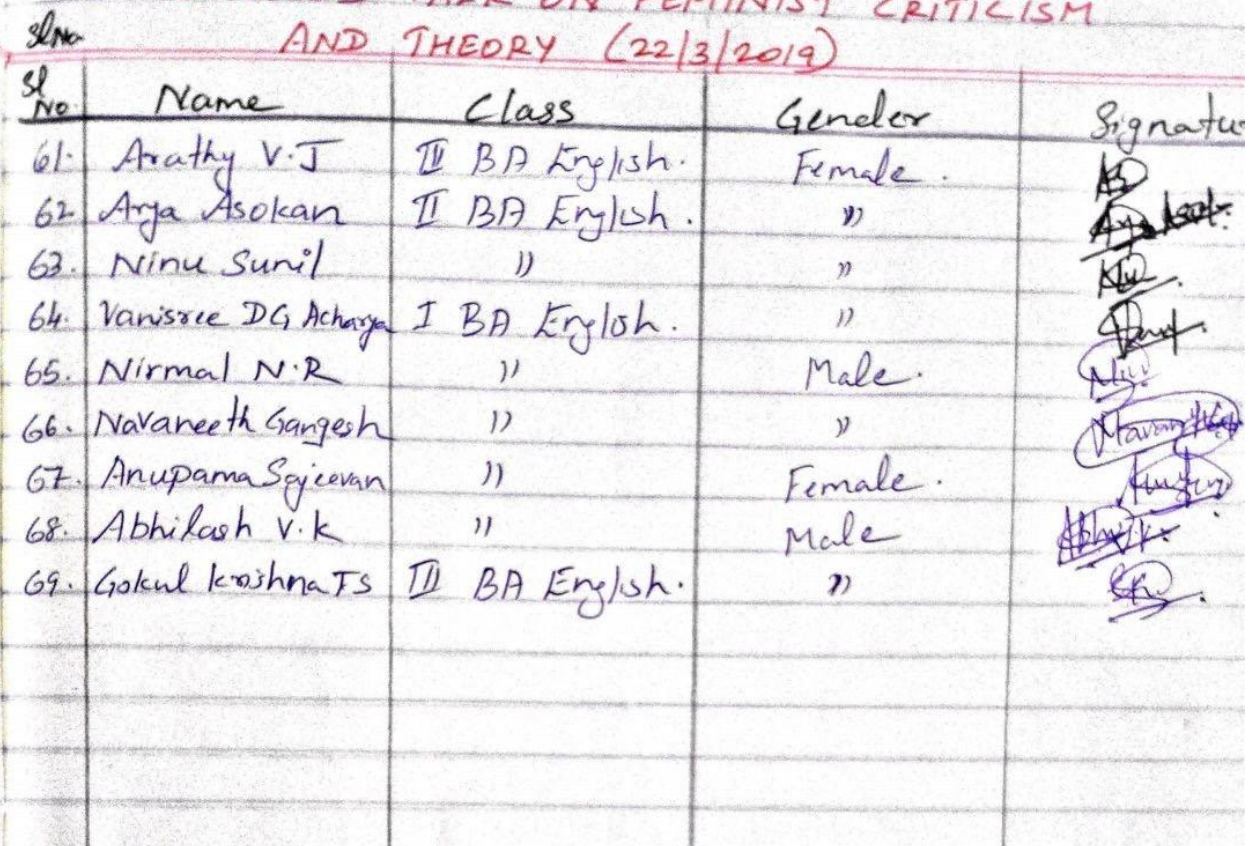 TALK ON FEMINIST CRITICISM
Sl No AND THEORY (22/3/2019)
Sl No. Name Class Gender Signatu
61. Arathy V.J III BA English. Female.
62. Arya Asokan II BA English. "
63. Ninu Sunil " "
64. Vanisree DG Acharya I BA English. "
65. Nirmal N.R " Male.
66. Navaneeth Gangesh " "
67. Anupama Sajeevan " Female.
68. Abhilash V.K " Male
69. Gokul Krishna TS III BA English. "